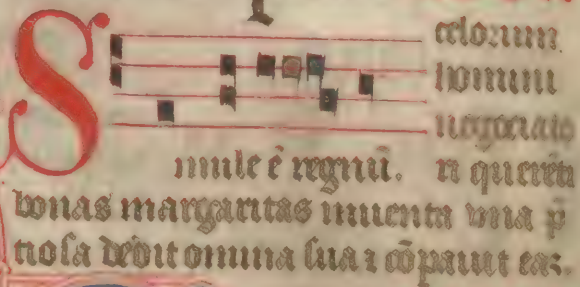 S
celorum
homini
negociato
imile ē regnū. ri querēti
bonas margaritas inuenta una p̄
tiosa dedit omnia sua ⁊ cōpauit eaꝫ.